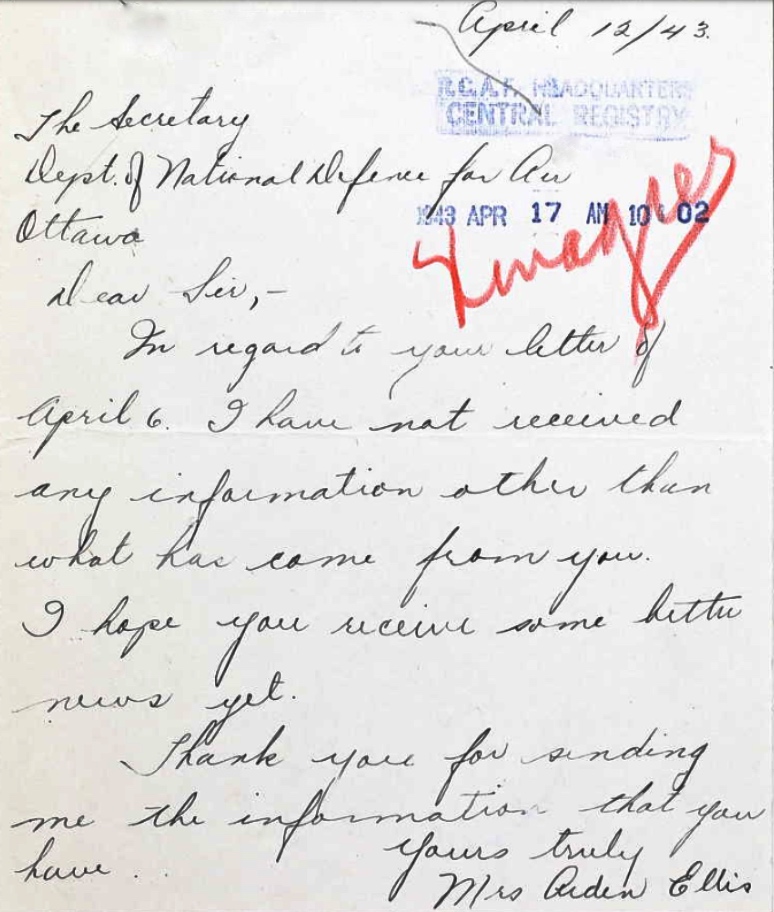 April 12/43.
R.C.A.F. HEADQUARTERS
CENTRAL REGISTRY
The Secretary
Dept. of National Defence for Air
1943 APR 17 AM 10 02
Ottawa
Dear Sir,-
In regard to your letter of
April 6. I have not received
any information other than
what has come from you.
I hope you receive some better
news yet.
Thank you for sending
me the information that you
have..
Yours truly
Mrs Arden Ellis